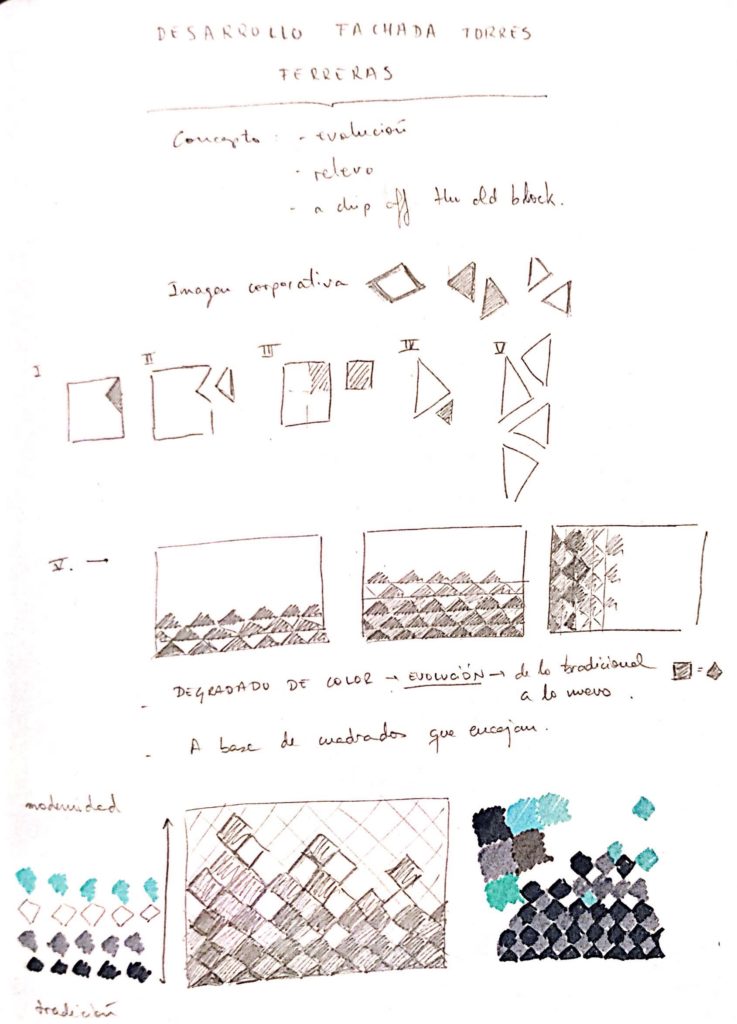 DESARROLLO FACHADA TORRES
FERRERAS
Concepto : - evolución
- relevo
- a chip off the old block.
Imagen corporativa
I
II
III
IV
V
V. →
- DEGRADADO DE COLOR → EVOLUCIÓN → de lo tradicional
a lo nuevo .
=
- A base de cuadrados que encajan.
modernidad
tradición